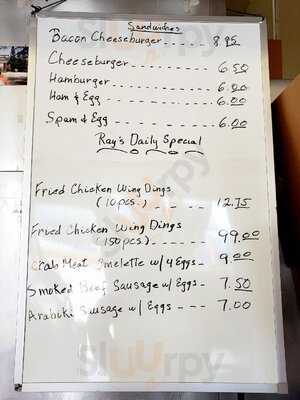 Sandwiches
Bacon Cheeseburger ------ 8.95
Cheeseburger ------------ 6.50
Hamburger --------------- 6.00
Ham & Egg --------------- 6.00
Spam & Egg -------------- 6.00
Ray's Daily Special
Fried Chicken Wing Dings
(10pcs.) ---------- 12.75
Fried Chicken Wing Dings
(150pcs.) --------- 99.00
Crab Meat Omelette w/ 4 Eggs - 9.00
Smoked Beef Sausage w/ Eggs - 7.50
Arabiki Sausage w/ Eggs --- 7.00
sluurpy
sluurpy